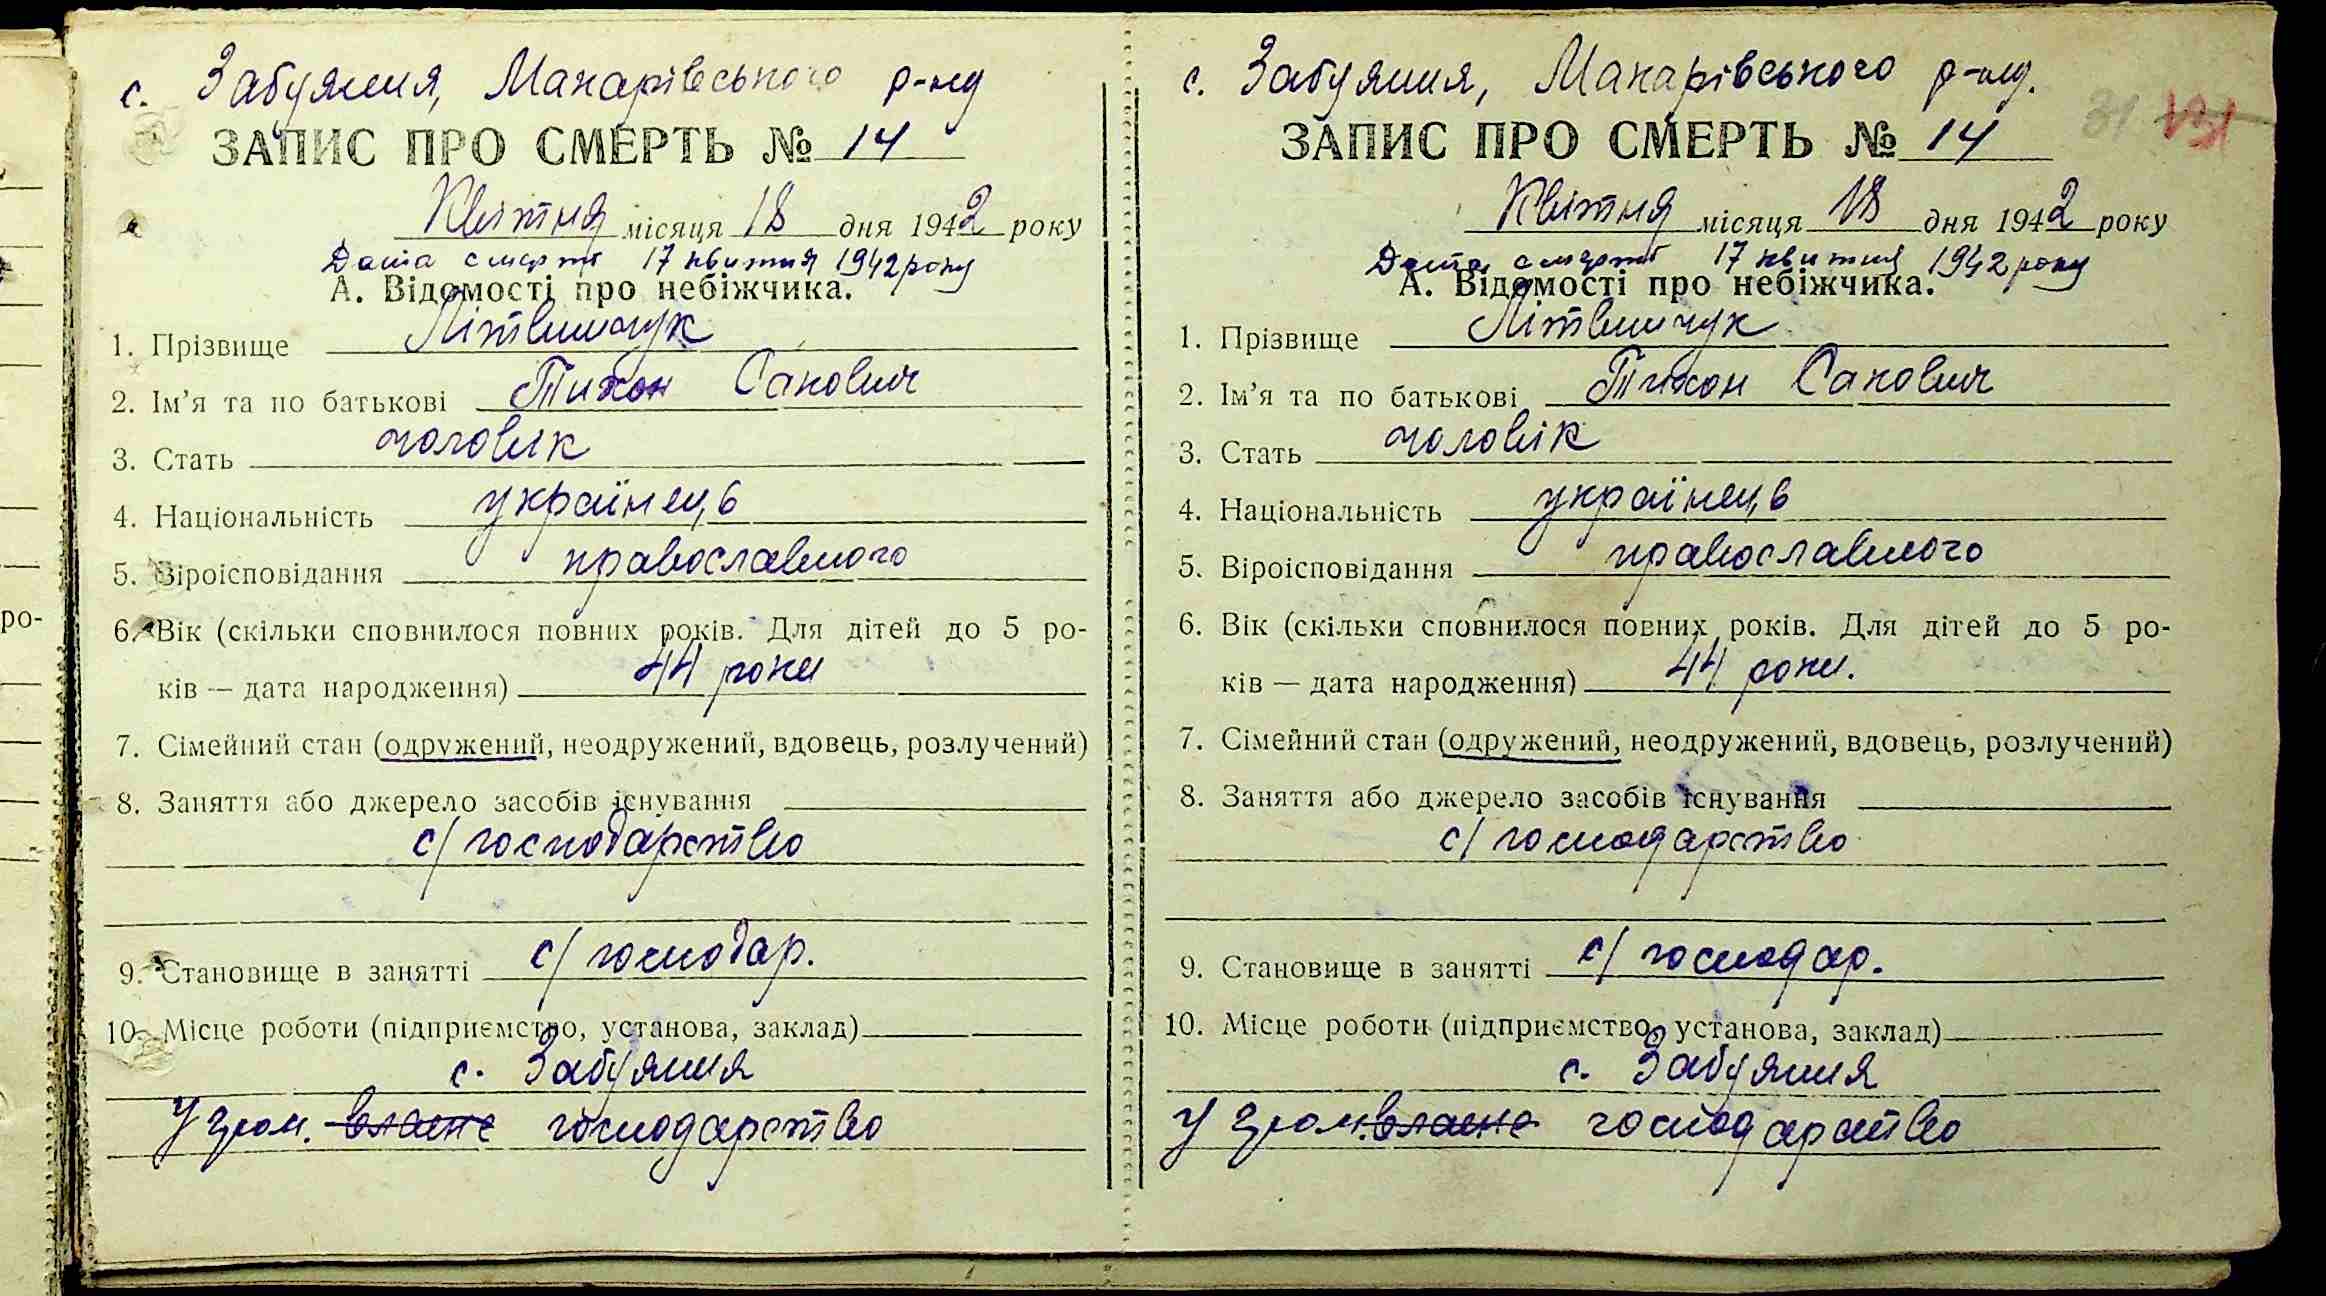 с. Забуяння, Макарівського р-ну
ЗАПИС ПРО СМЕРТЬ № 14
Квітня місяця 18 дня 1942 року
Дата смерті 17 квітня 1942 року
А. Відомості про небіжчика.
1. Прізвище Літвинчук
2. Ім'я та по батькові Тихон Сакович
3. Стать чоловік
4. Національність українець
5. Віроісповідання православного
6. Вік (скільки сповнилося повних років. Для дітей до 5 ро-
ків — дата народження) 44 роки
7. Сімейний стан (одружений, неодружений, вдовець, розлучений)
8. Заняття або джерело засобів існування
с/господарство
9. Становище в занятті с/господар.
10. Місце роботи (підприємство, установа, заклад)
с. Забуяння
У гром. власне господарство
с. Забуяння, Макарівського р-ну.
31 131
ЗАПИС ПРО СМЕРТЬ № 14
Квітня місяця 18 дня 1942 року
Дата смерті 17 квитня 1942 року
А. Відомості про небіжчика.
1. Прізвище Літвинчук
2. Ім'я та по батькові Тихон Сакович
3. Стать чоловік
4. Національність українець
5. Віроісповідання православного
6. Вік (скільки сповнилося повних років. Для дітей до 5 ро-
ків — дата народження) 44 роки.
7. Сімейний стан (одружений, неодружений, вдовець, розлучений)
8. Заняття або джерело засобів існування
с/господарство
9. Становище в занятті с/господар.
10. Місце роботи (підприємство, установа, заклад)
с. Забуяння
У гром. власне господарство
ро-